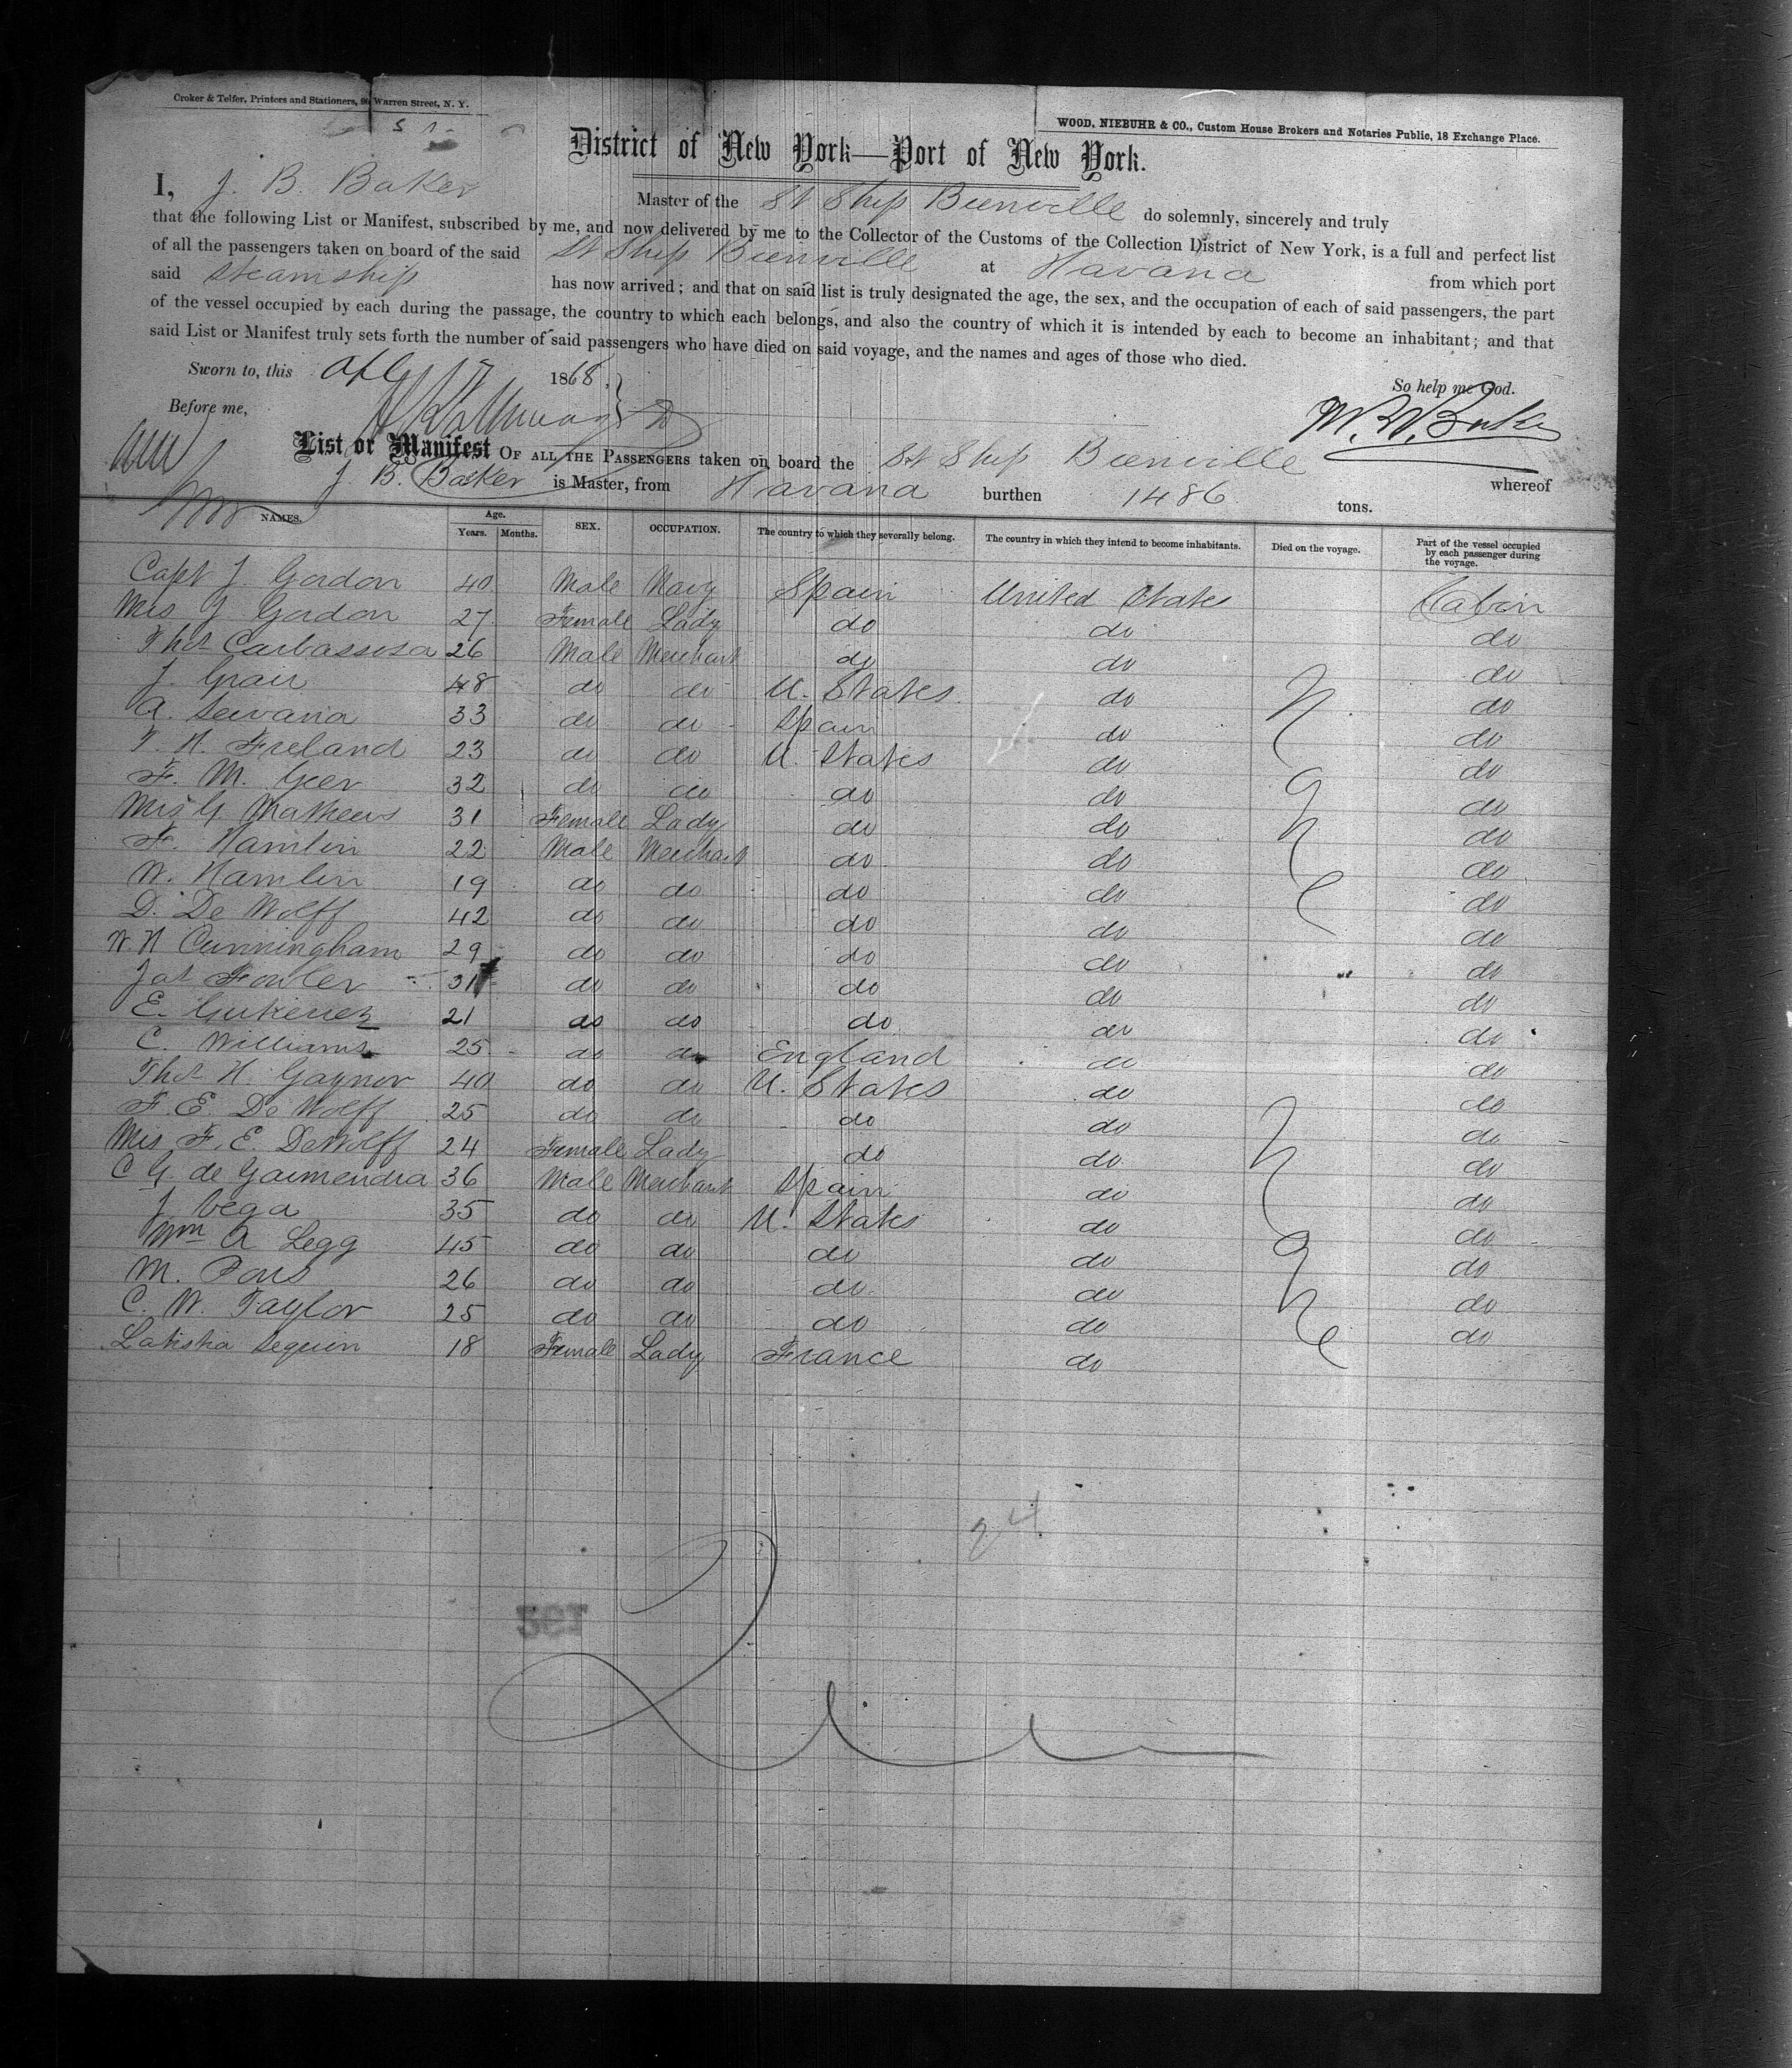 Croker & Telfer, Printers and Stationers, 90 Warren Street, N. Y.
WOOD, NIEBUHR & CO., Custom House Brokers and Notaries Public, 18 Exchange Place.
District of New York—Port of New York.
I, J. B. Baker Master of the St Ship Bienville do solemnly, sincerely and truly
that the following List or Manifest, subscribed by me, and now delivered by me to the Collector of the Customs of the Collection District of New York, is a full and perfect list
of all the passengers taken on board of the said St Ship Bienville at Havana from which port
said Steamship has now arrived; and that on said list is truly designated the age, the sex, and the occupation of each of said passengers, the part
of the vessel occupied by each during the passage, the country to which each belongs, and also the country of which it is intended by each to become an inhabitant; and that
said List or Manifest truly sets forth the number of said passengers who have died on said voyage, and the names and ages of those who died.
Sworn to, this Apl 17 1868.
So help me God.
Before me,
List or Manifest OF ALL THE PASSENGERS taken on board the St Ship Bienville whereof
J. B. Baker is Master, from Havana burthen 1486 tons.
NAMES. Age. Years. Months. SEX. OCCUPATION. The country to which they severally belong. The country in which they intend to become inhabitants. Died on the voyage. Part of the vessel occupied by each passenger during the voyage.
Capt J. Gordon 40 Male Navy Spain United States Cabin
Mrs J. Gordon 27 Female Lady do do do
Thos Carbassosa 26 Male Merchant do do do
J. Grair 48 do do U. States do do
A. 33 do do Spain do do
T. H. Freland 23 do do U. States do do
F. M. Geer 32 do do do do do
Mrs G Mathews 31 Female Lady do do do
F. Hamlin 22 Male Merchant do do do
W. Hamlin 19 do do do do do
D. De Wolff 42 do do do do do
W H Cunningham 29 do do do do do
Jas Fowler 31 do do do do do
E. Gutierrez 21 do do do do do
C. Williams 25 do do England do do
Thos H. Gaynor 40 do do U. States do do
F. E. De Wolff 25 do do do do do
Mrs F. E. DeWolff 24 Female Lady do do do
C G. de Gaimendia 36 Male Merchant Spain do do
J Vega 35 do do U. States do do
Wm A Legg 45 do do do do do
M. Pons 26 do do do do do
C. W. Taylor 25 do do do do do
Latistia Seguin 18 Female Lady France do
24